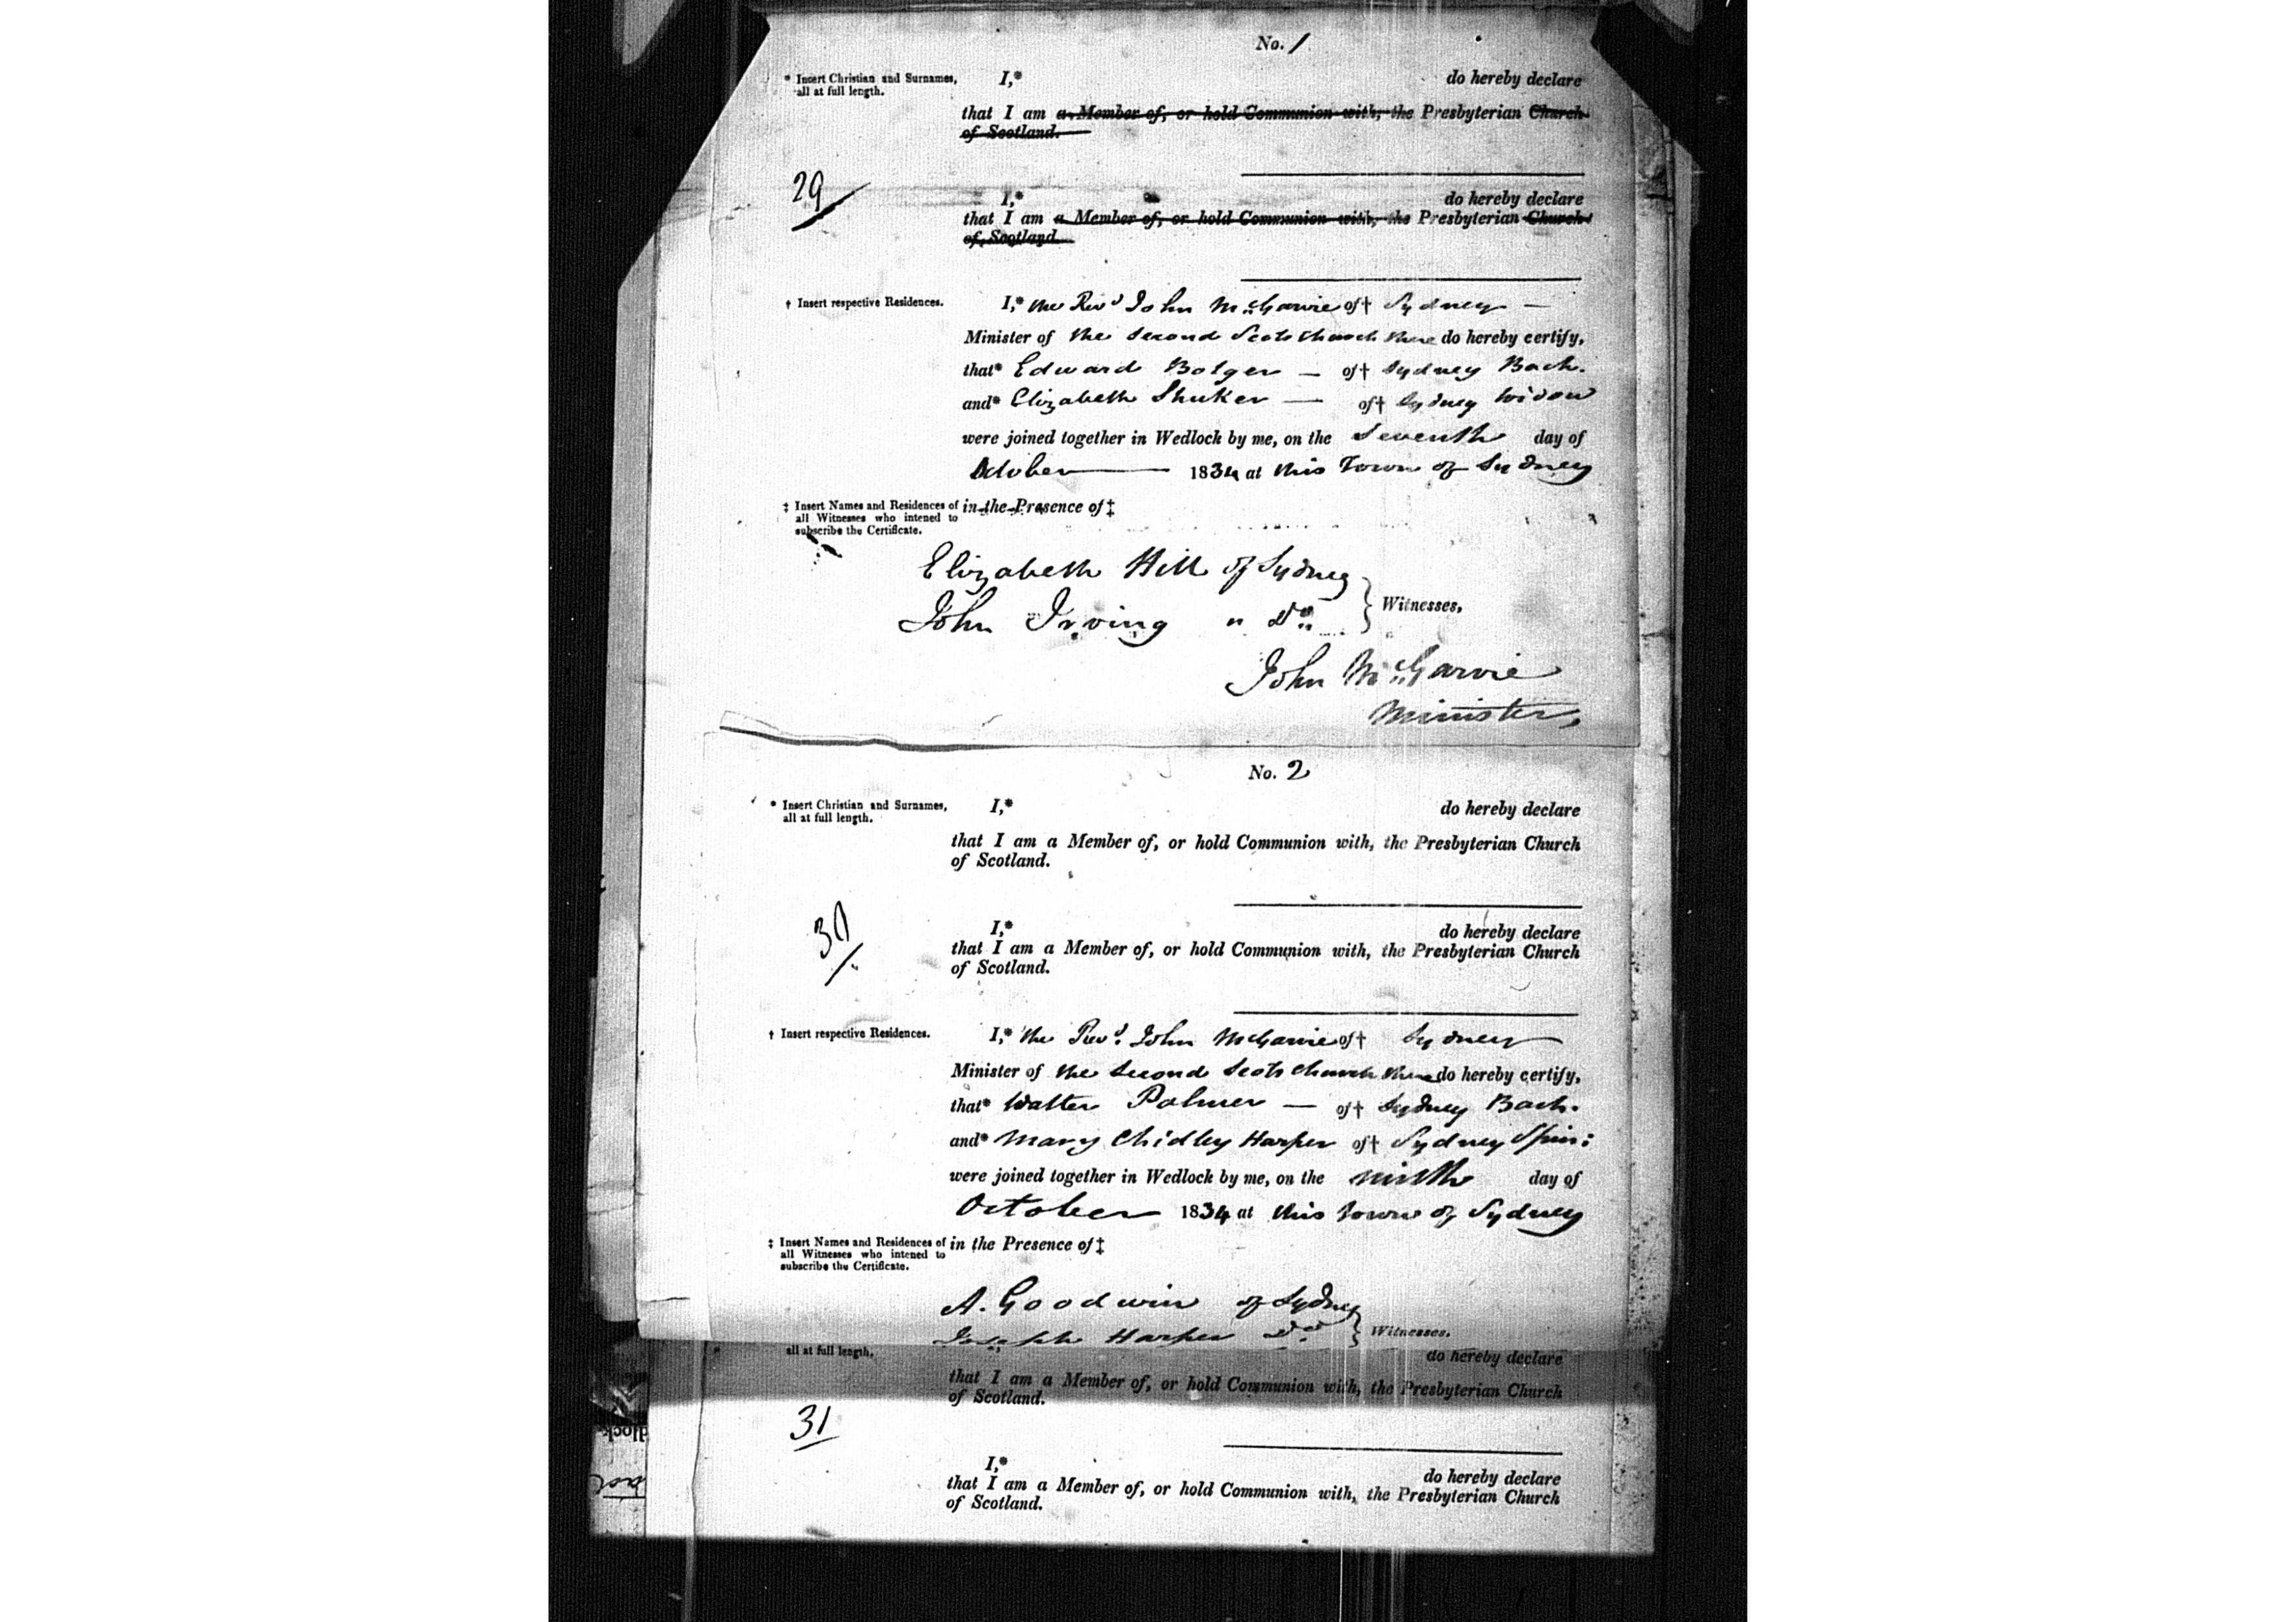 No. 1
* Insert Christian and Surnames, all at full length.
I,* do hereby declare
that I am a Member of, or hold Communion with, the Presbyterian Church
of Scotland.
29
I,* do hereby declare
that I am a Member of, or hold Communion with, the Presbyterian Church
of Scotland.
† Insert respective Residences.
I,* the Revd John McGarvie of† Sydney —
Minister of the Second Scots Church there do hereby certify,
that* Edward Bolger — of† Sydney Bach.
and* Elizabeth Shuker — of† Sydney Widow
were joined together in Wedlock by me, on the Seventh day of
October — 1834 at this Town of Sydney
‡ Insert Names and Residences of all Witnesses who intened to subscribe the Certificate.
in the Presence of‡
Elizabeth Hill of Sydney
John Irving " Do
Witnesses,
John McGarvie
Minister
No. 2
* Insert Christian and Surnames, all at full length.
I,* do hereby declare
that I am a Member of, or hold Communion with, the Presbyterian Church
of Scotland.
30
I,* do hereby declare
that I am a Member of, or hold Communion with, the Presbyterian Church
of Scotland.
† Insert respective Residences.
I,* the Revd. John McGarvie of† Sydney
Minister of the Second Scots Church there do hereby certify,
that* Walter Palmer — of† Sydney Bach.
and* Mary Chidley Harper of† Sydney Spin:
were joined together in Wedlock by me, on the ninth day of
October 1834 at this Town of Sydney
‡ Insert Names and Residences of all Witnesses who intened to subscribe the Certificate.
in the Presence of‡
A. Goodwin of Sydney
Joseph Harper Do
Witnesses.
all at full length.
do hereby declare
that I am a Member of, or hold Communion with, the Presbyterian Church
of Scotland.
31
I,* do hereby declare
that I am a Member of, or hold Communion with, the Presbyterian Church
of Scotland.